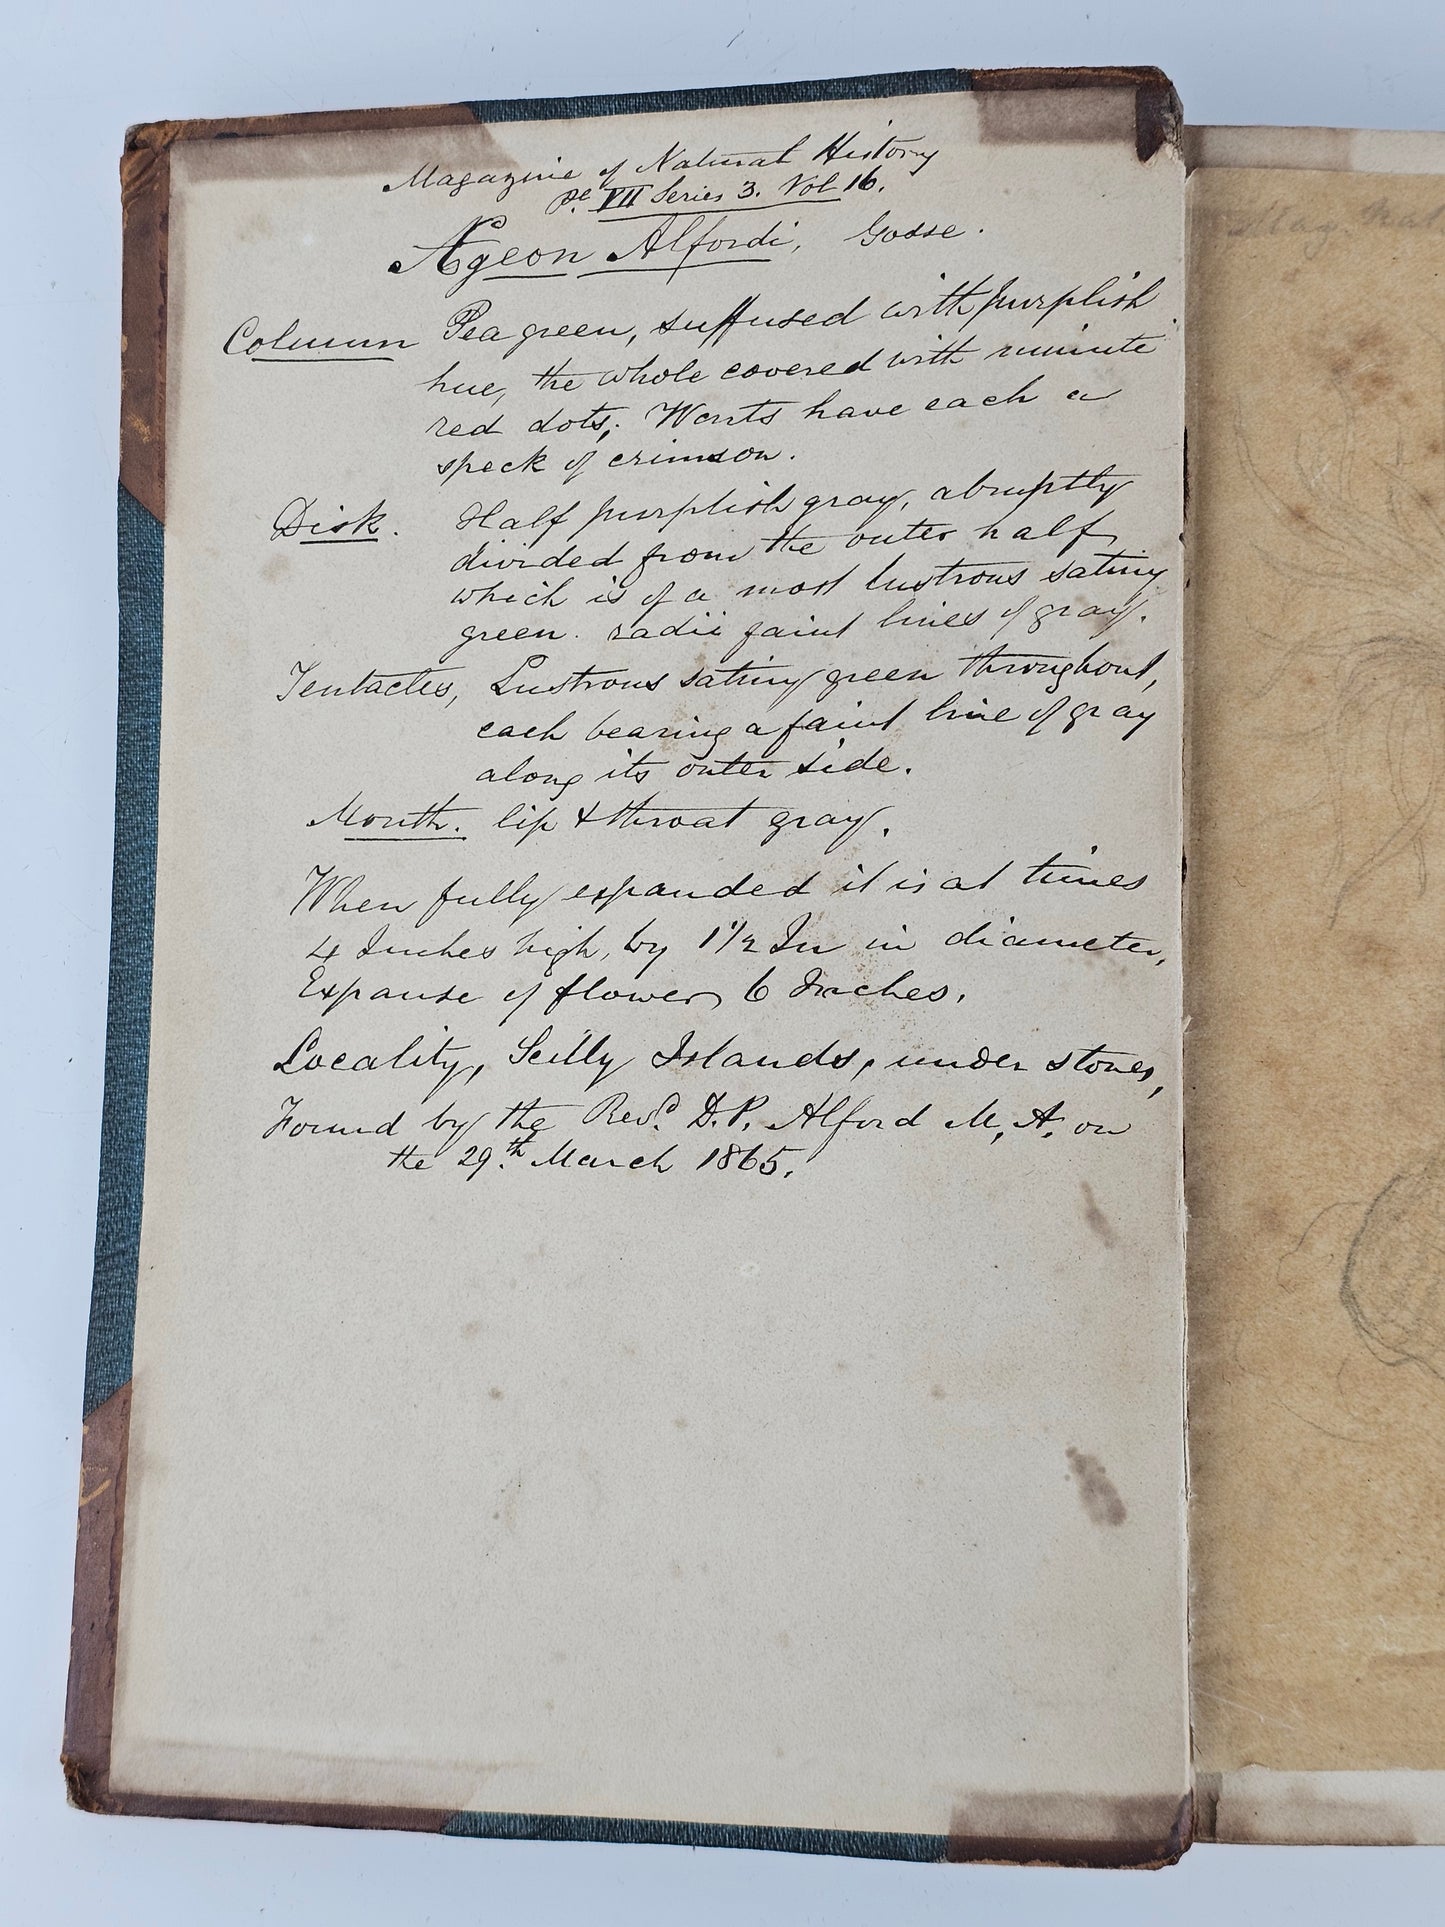 Magazine of Natural History
Pl. VII Series 3. Vol 16.
Ægeon Alfordi, Gosse.
Column Pea green, suffused with purplish
hue, the whole covered with minute
red dots; Warts have each a
speck of crimson.
Disk. Half purplish gray, abruptly
divided from the outer half,
which is of a most lustrous satiny
green. radii faint lines of gray.
Tentacles, Lustrous satiny green throughout,
each bearing a faint line of gray
along its outer side.
Mouth. lip & throat gray.
When fully expanded it is at times
4 Inches high, by 1 1/2 In in diameter,
Expanse of flower 6 Inches.
Locality, Scilly Islands, under stones,
Found by the Revd. D. P. Alford M. A. on
the 29th March 1865.
Mag. Nat